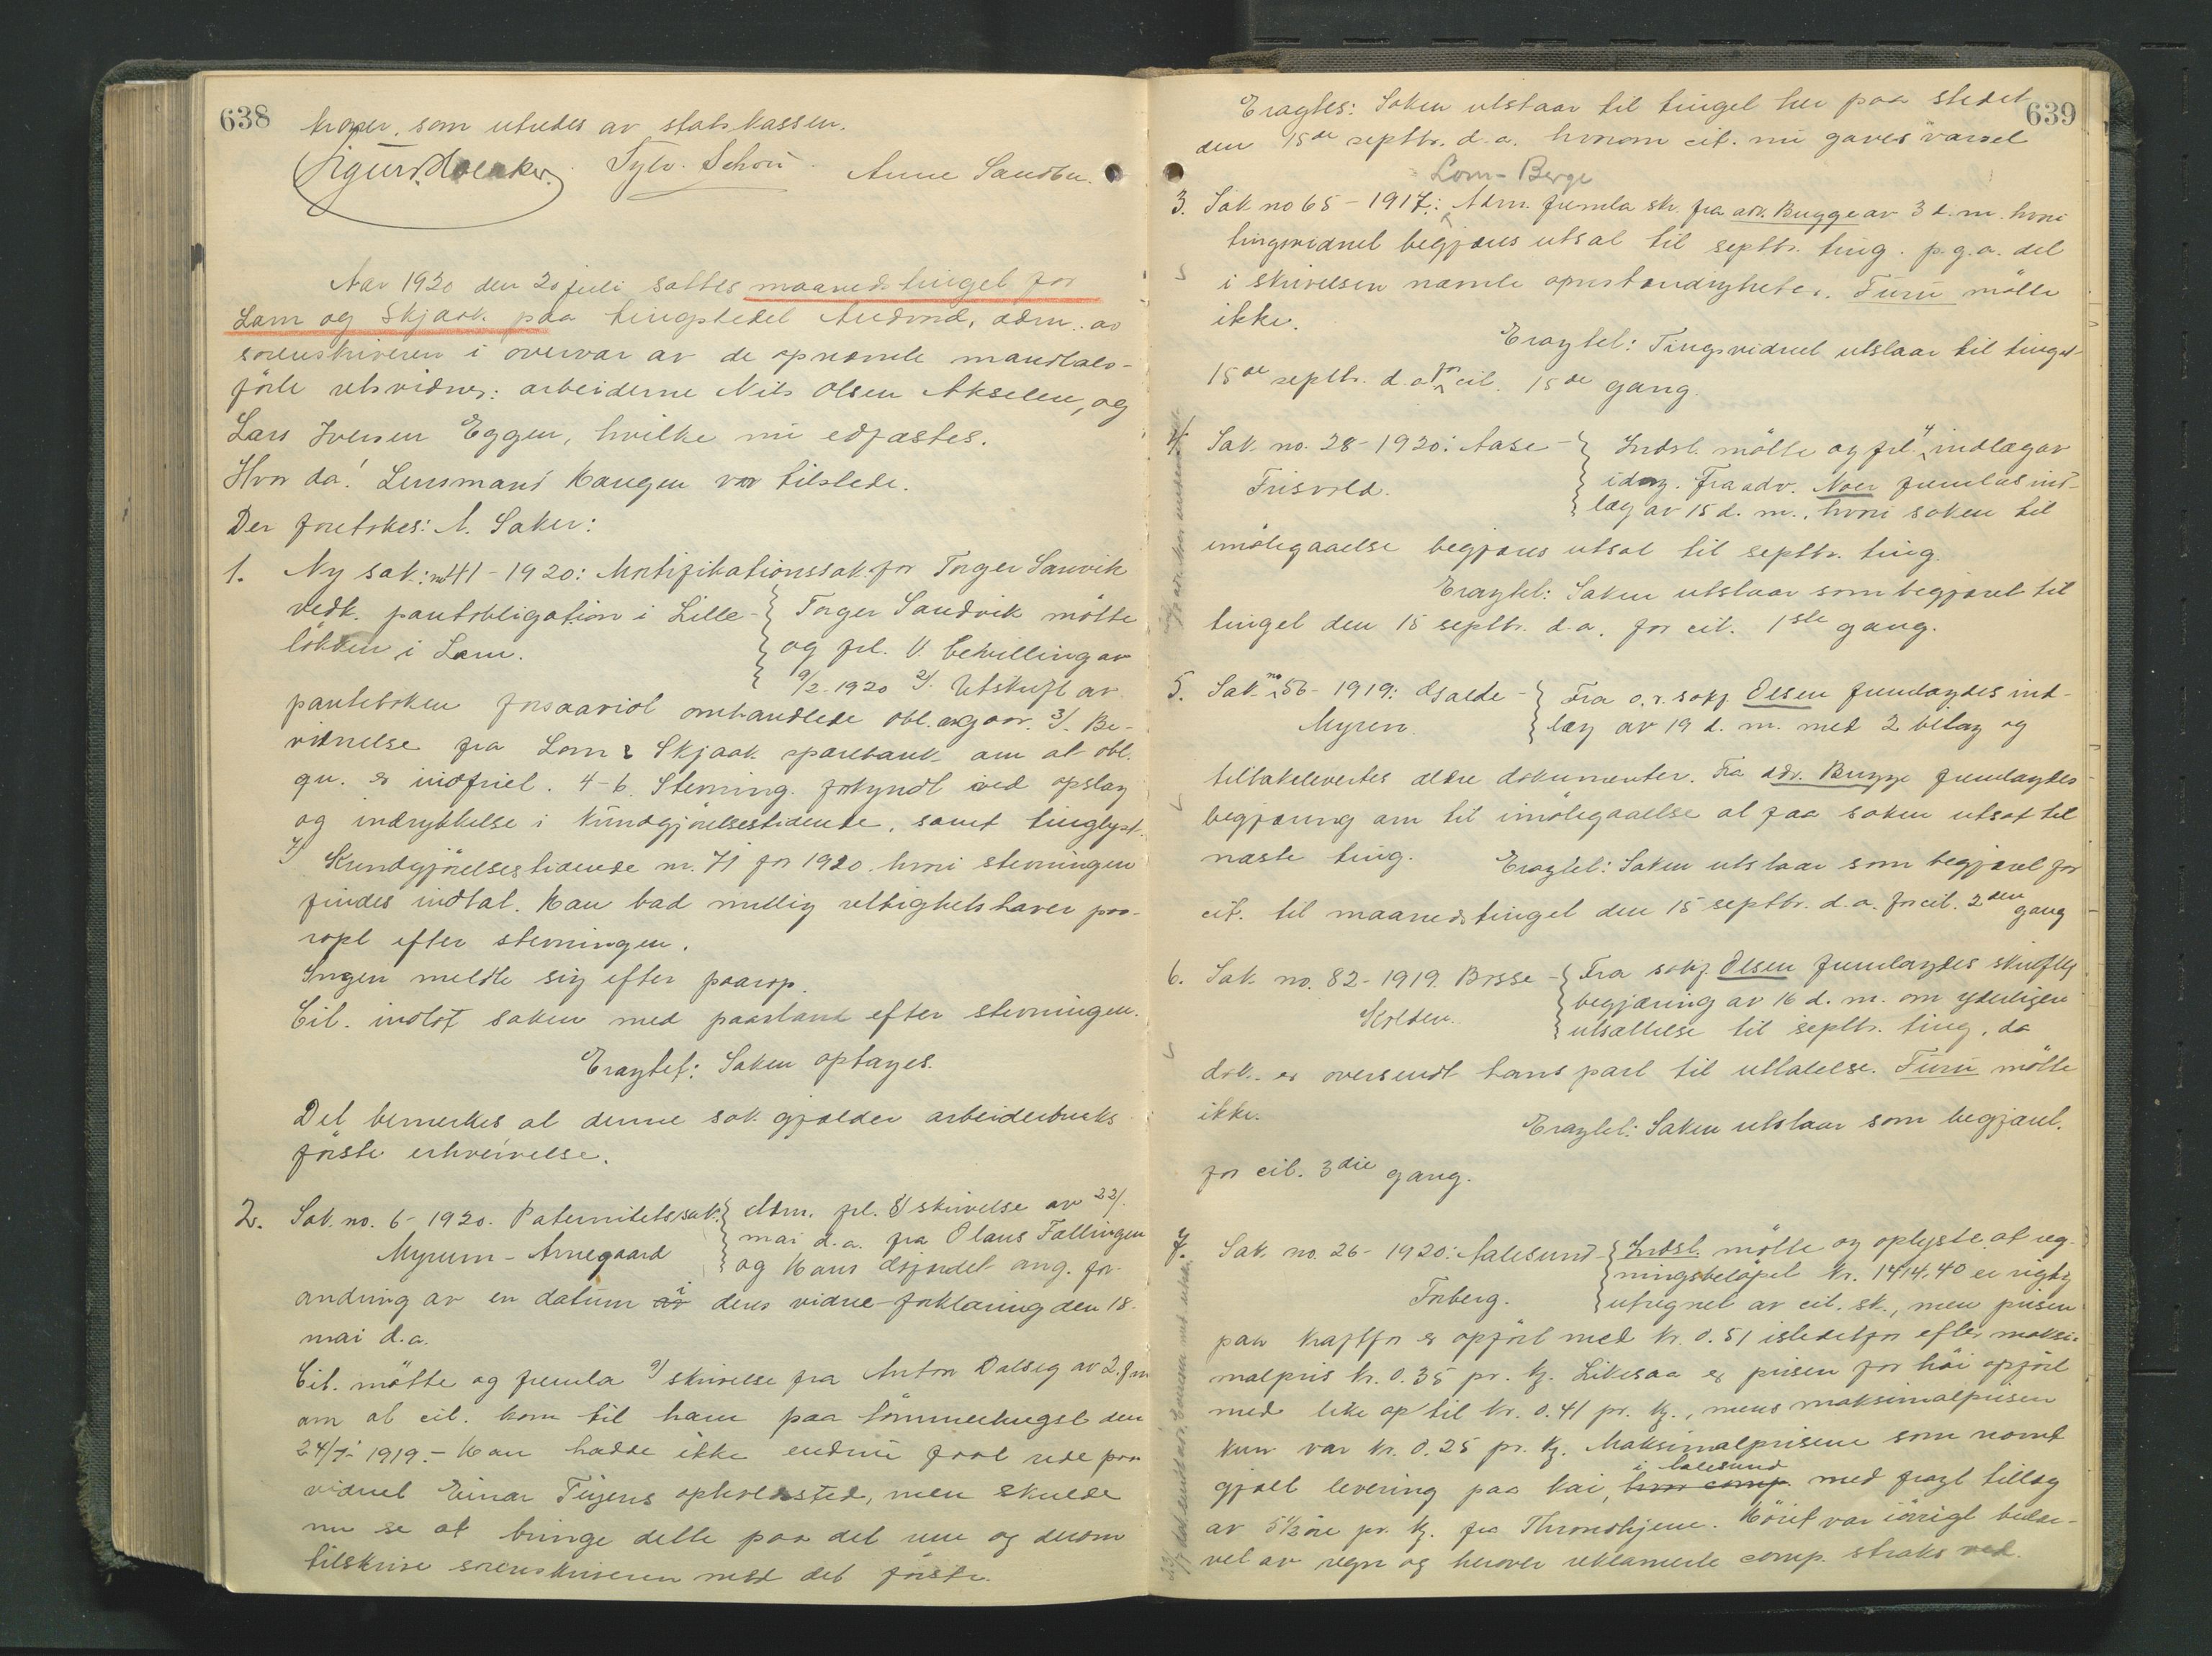 638
kroner, som utredes av statskassen.
Sylv. Schou Anne Sandbu.
Aar 1920 den 20 juli sattes maanedstinget for
Lom og Skjaak paa tingstedet Andvord, adm. av
sorenskriveren i overvær av de opnævnte mandtals-
førte retsvidner: arbeiderne Nils Olsen Akselen, og
Lars Iversen Eggen, hvilke nu edfæstes.
Hvor da! Lensmand Haugen var tilstede.
Der foretokes: A. Saker:
1. Ny sak: no 41-1920: Mortifikationssak for Torger Sandvik
vedk. pantobligation i Lille- Torger Sandvik møtte
løkken i Lom. og frl. 1/. bevilling av
9/2-1920 2/. Utskrift av
panteboken forsaavidt omhandlede obl. angaar. 3/. Be-
vidnelse fra Lom & Skjaak sparebank om at obl.
qu. er indfriet. 4-6. Stevning. forkyndt ved opslag
og indrykkelse i Kundgjørelsestidende, samt tinglyst.
7/ Kundgjørelsestidende nr. 71 for 1920. hvori stevningen
findes indtat. Han bad mulig rettighetshaver paa-
ropt efter stevningen.
Ingen meldte sig efter paarop.
Cit. indlot saken med paastand efter stevningen.
Eragtet: Saken optages.
Det bemerkes at denne sak gjælder arbeiderbruks
første erhvervelse.
2. Sak. no. 6-1920. Paternitetssak: Adm. frl. 8/ skrivelse av 22/.
Myrum-Arnegaard mai d.a. fra Olaus Fallingen
og Hans ang. for-
andring av en datum i deres vidne-forklaring den 18.
mai d.a.
Cit. møtte og fremla 9/ skrivelse fra Anton Dalseg av 2. jan
om at cit. kom til ham paa tømmerhugst den
24/7- 1919.- Han hadde ikke endnu faat rede paa
vidnet Einar opholdssted, men skulde
nu se at bringe dette paa det rene og derom
tilskrive sorenskriveren med det første.
639
Eragtes: Saken utstaar til tinget her paa stedet
den 15de septbr. d.a. hvorom cit. nu gaves varsel
Lom-Berge
3. Sak no 65-1917: Adm. fremla skr. fra adv. Bugge av 3 d.m. hvori
tingsvidnet begjæres utsat til septbr. ting. p.g.a. det
i skrivelsen nævnte omstændigheter. Furu møtte
ikke.
Eragtet: Tingsvidnet utstaar til tinget
15de septbr. d.a. for cit. 15de gang.
4. Sak. no. 28-1920: Aase- Indst. møtte og frl. 4/ indlæg av
Frisvold. idag. Fra adv. Noer fremlas ind-
læg av 15 d. m., hvori saken til
imøtegaaelse begjæres utsat til septbr. ting.
Eragtet: Saken utstaar som begjæret til
tinget den 15 septbr. d.a. for cit. 1ste gang.
5. Sak no 56-1919: Galde- Fra o.r.sakf. Olsen fremlagdes ind-
Myren. læg av 19 d. m. med 2 bilag og
tilbakelevertes ældre dokumenter. Fra adv. Bugge fremlagdes
begjæring om til imøtegaaelse at faa saken utsat til
næste ting. Eragtet: Saken utstaar som begjæret for
cit. til maanedstinget den 15 septbr. d.a. for cit. 2den gang
6. Sak. no. 82-1919. Fra sakf. Olsen fremlagdes skriftlig
Kolden. begjæring av 16 d. m. om yderligere
utsættelse til septbr. ting, da
dok. er oversendt hans part til uttalelse. Furu møtte
ikke.
Eragtet: Saken utstaar som begjæret.
for cit. 3die gang.
7. Sak. no. 26-1920: Aalesund- Indst. møtte og oplyste at reg-
Forberg. ningsbeløpet kr. 1414,40 er rigtig
utregnet av cit. sk., men prisen
paa kraftfor er opført med kr. 0.51 istedetfor efter maksi-
malpris kr. 0.35 pr. kg. Likesaa er prisen for høi opført
med like op til kr. 0.41 pr. kg., mens maksimalprisen
kun var kr. 0.25 pr. kg. Maksimalprisene som nævnt
i Aalesund
gjælt levering paa kai, hvor comp. med fragt tillæg
av 5 1/2 øre pr. kg. fra Throndhjem. Høiet var iøvrigt bedær-
vet av regn og herover reklamerte comp. straks ved.